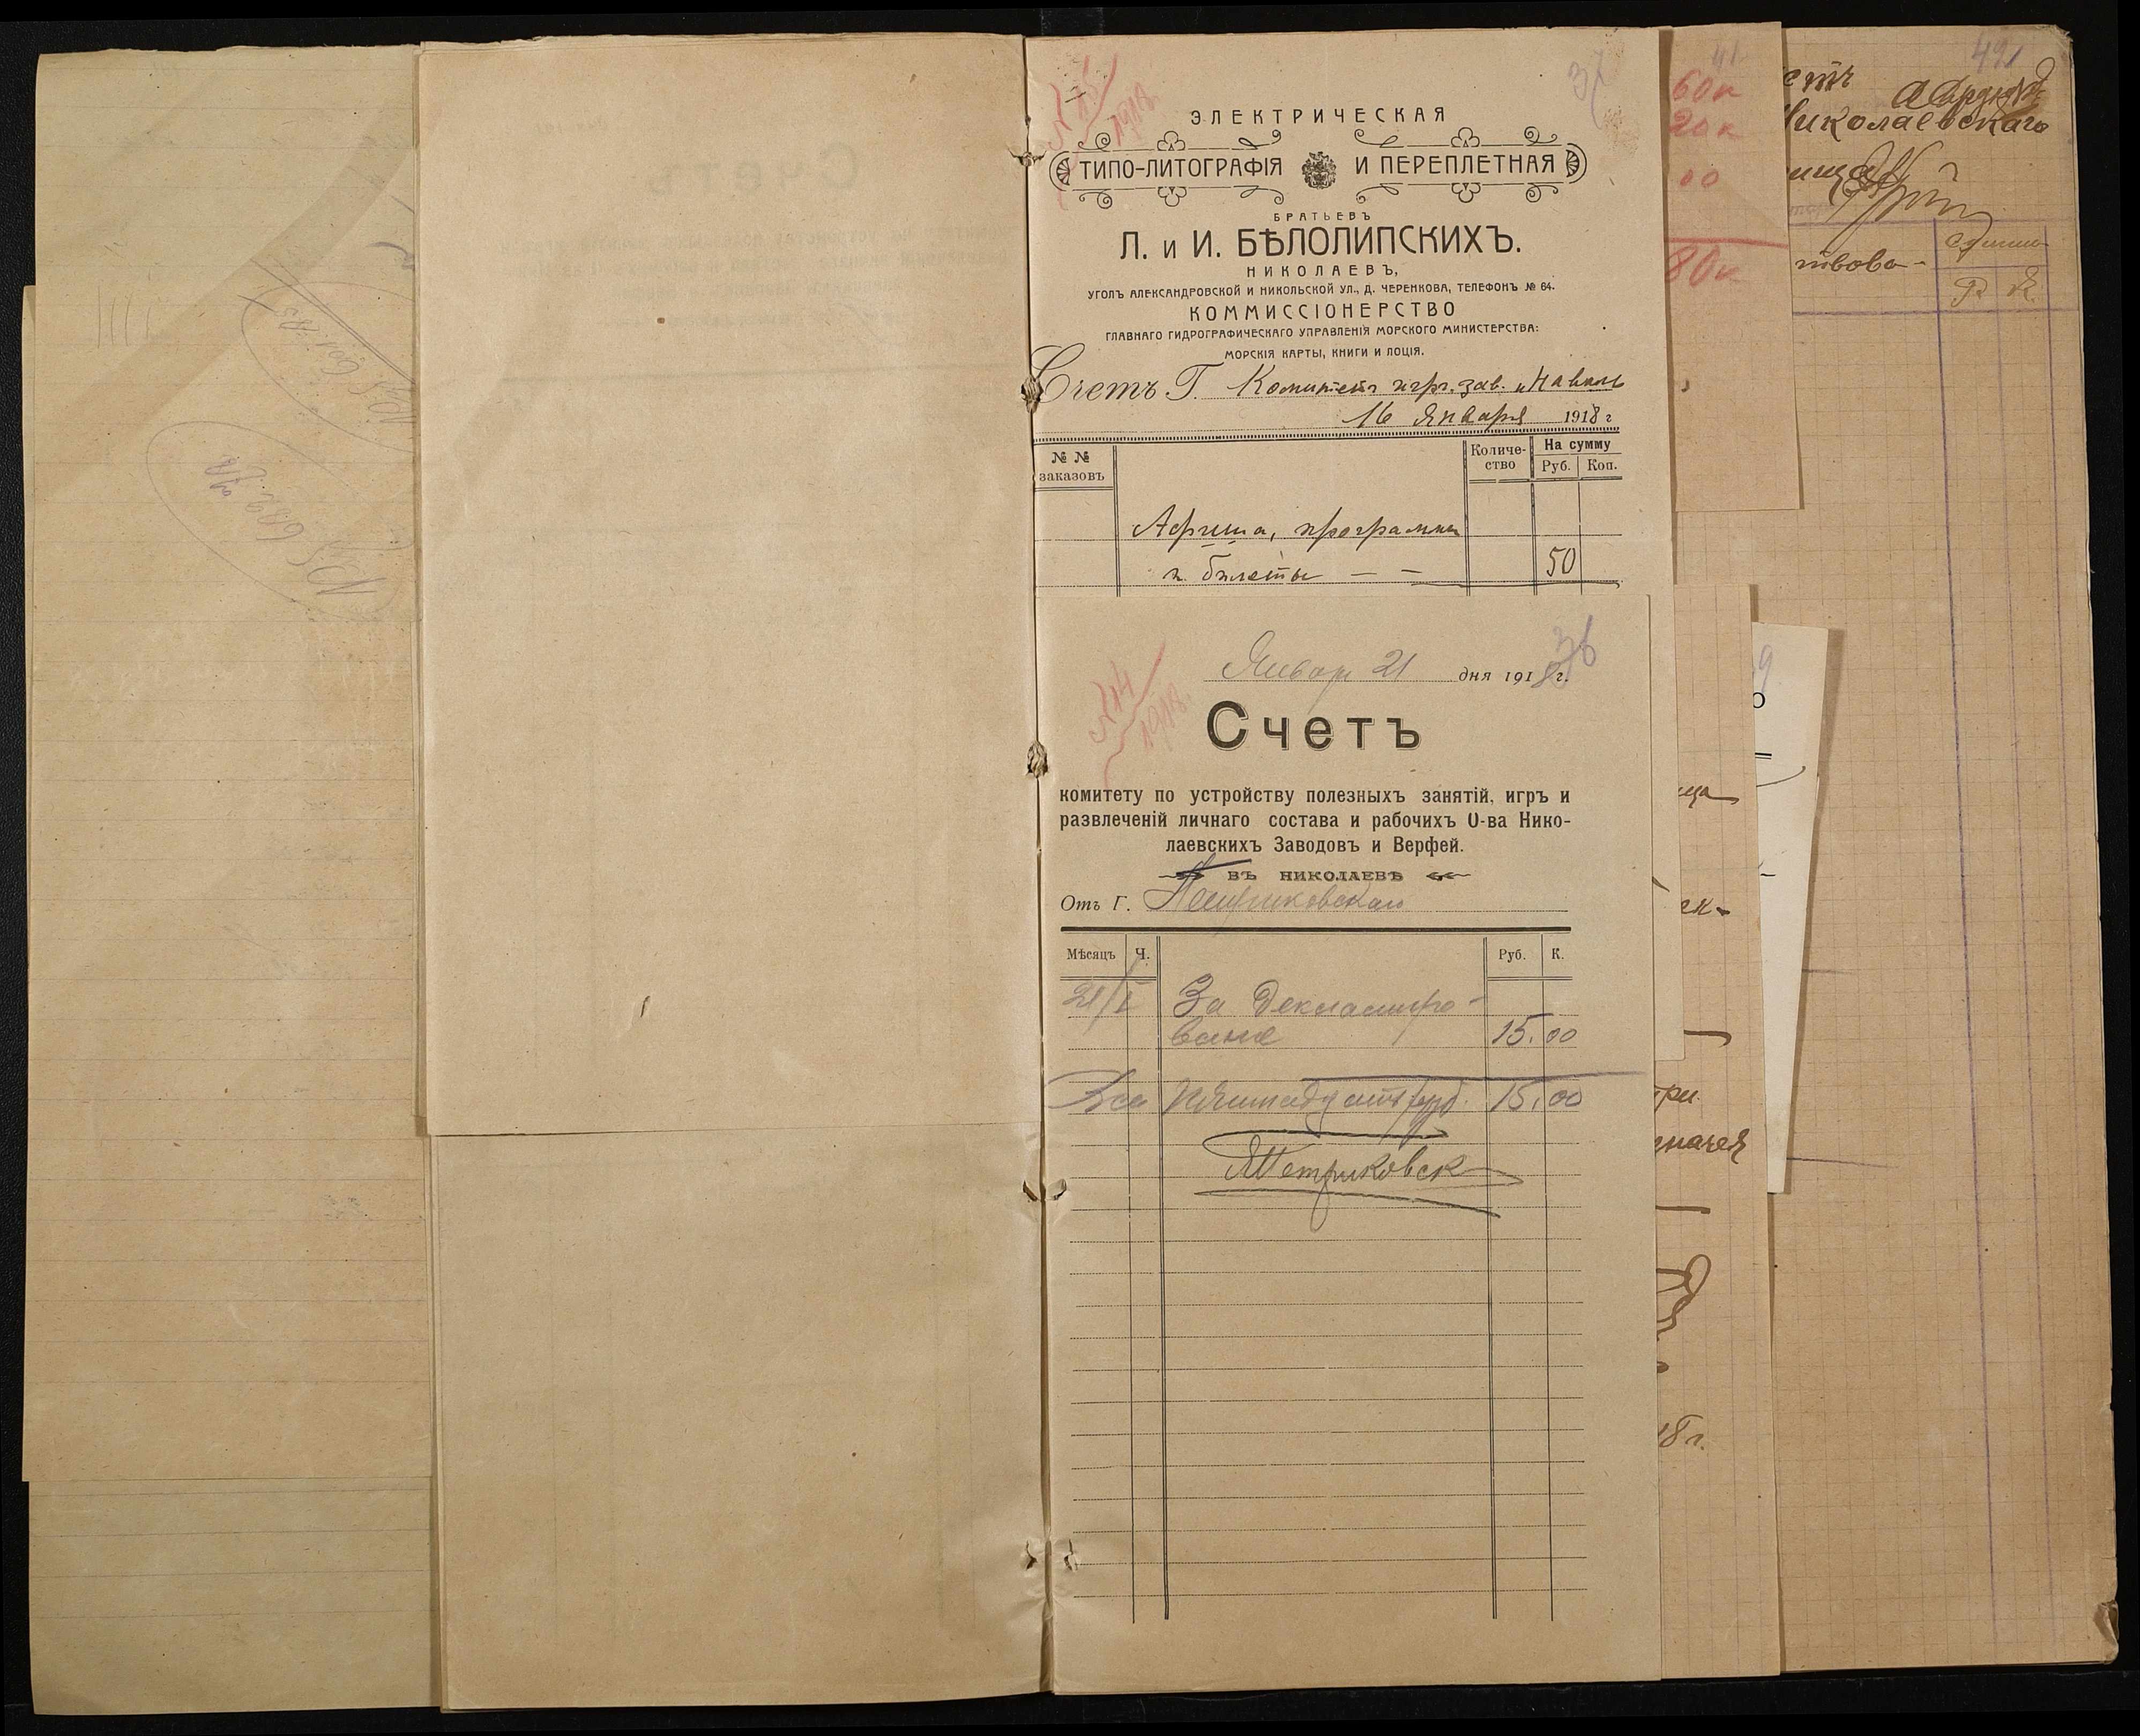 37
№ 15
1918
ЭЛЕКТРИЧЕСКАЯ
ТИПО-ЛИТОГРАФІЯ И ПЕРЕПЛЕТНАЯ
БРАТЬЕВЪ
Л. и И. БѢЛОЛИПСКИХЪ.
НИКОЛАЕВЪ,
УГОЛЪ АЛЕКСАНДРОВСКОЙ И НИКОЛЬСКОЙ УЛ., Д. ЧЕРЕНКОВА, ТЕЛЕФОНЪ № 64.
КОММИССІОНЕРСТВО
ГЛАВНАГО ГИДРОГРАФИЧЕСКАГО УПРАВЛЕНІЯ МОРСКОГО МИНИСТЕРСТВА:
МОРСКІЯ КАРТЫ, КНИГИ И ЛОЦІЯ.
Счетъ Г. Комитетъ при зав. „Наваль
16 Января 1918 г
№ № заказовъ
Количе-ство
На сумму
Руб. Коп.
Афиша, программы
и билеты — — 50
36
№ 14
1918
Январ 21 дня 1918 г.
Счетъ
комитету по устройству полезныхъ занятій, игръ и
развлеченій личнаго состава и рабочихъ О-ва Нико-
лаевскихъ Заводовъ и Верфей.
ВЪ НИКОЛАЕВѢ
Отъ Г. Петриковскаго
Мѣсяцъ Ч. Руб. К.
21/I За Декламиро-
вание 15.00
Все Пятнадцать руб. 15.00
Петриковск
41
60к
20к
00
80к
49
Николаевскаго
ствова-
Сумма
Р. К.
18 г.